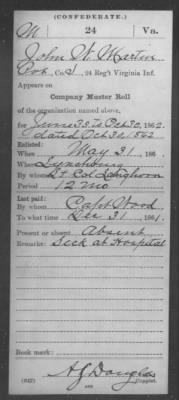 (CONFEDERATE.)
M 24 Va.
John W. Martin
Pvt, Co. I, 24 Reg't Virginia Inf.
Appears on
Company Muster Roll
of the organization named above,
for June 30 to Oct 30, 1862.
dated Oct 30, 1862
Enlisted:
When May 31, 186
Where Lynchburg
By whom Lt Col Langhorn
Period 12 mo
Last paid:
By whom Capt Wood
To what time Dec 31, 1861.
Present or absent Absent
Remarks: Sick at Hospital
Book mark:
(642) A J Douglas
Copyist.